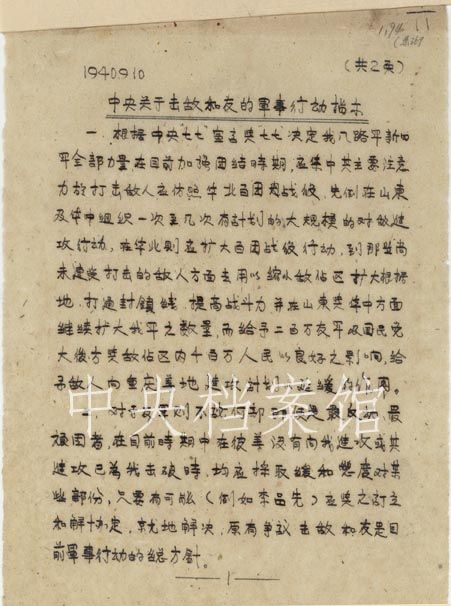 1940910
(共2页)
中央关于击敌和友的軍事行动指示
一．根据中央七七宣言与七七决定我八路平新四
平全部力量在目前加强团结時期，应集中其主要注意
力於打击敌人应仿照华北百团大战役，先例在山東
及华中组织一次至几次有計划的大規模的对敌進
攻行动，在华北則应扩大百团战役行动，到那些尚
未遭受打击的敌人方面去用以缩小敌佔区扩大根据
地，打通封鎖线，提高战斗力并在山東与华中方面
继续扩大我平之数量，而给予二百万友平及国民党
大後方与敌佔区内千百万人民以良好之影响，给
予敌人向重庆等地進攻計划以延缓的作用。
中央档案馆
強固者，在目前時期中在彼等没有向我進攻或其
進攻已為我击破時，均应採取缓和態度对某
些部份，只要有可能（例如李品先）应与之訂立
和解协定，就地解决，原有争议击敌和友是目
前軍事行动的总方針。
1